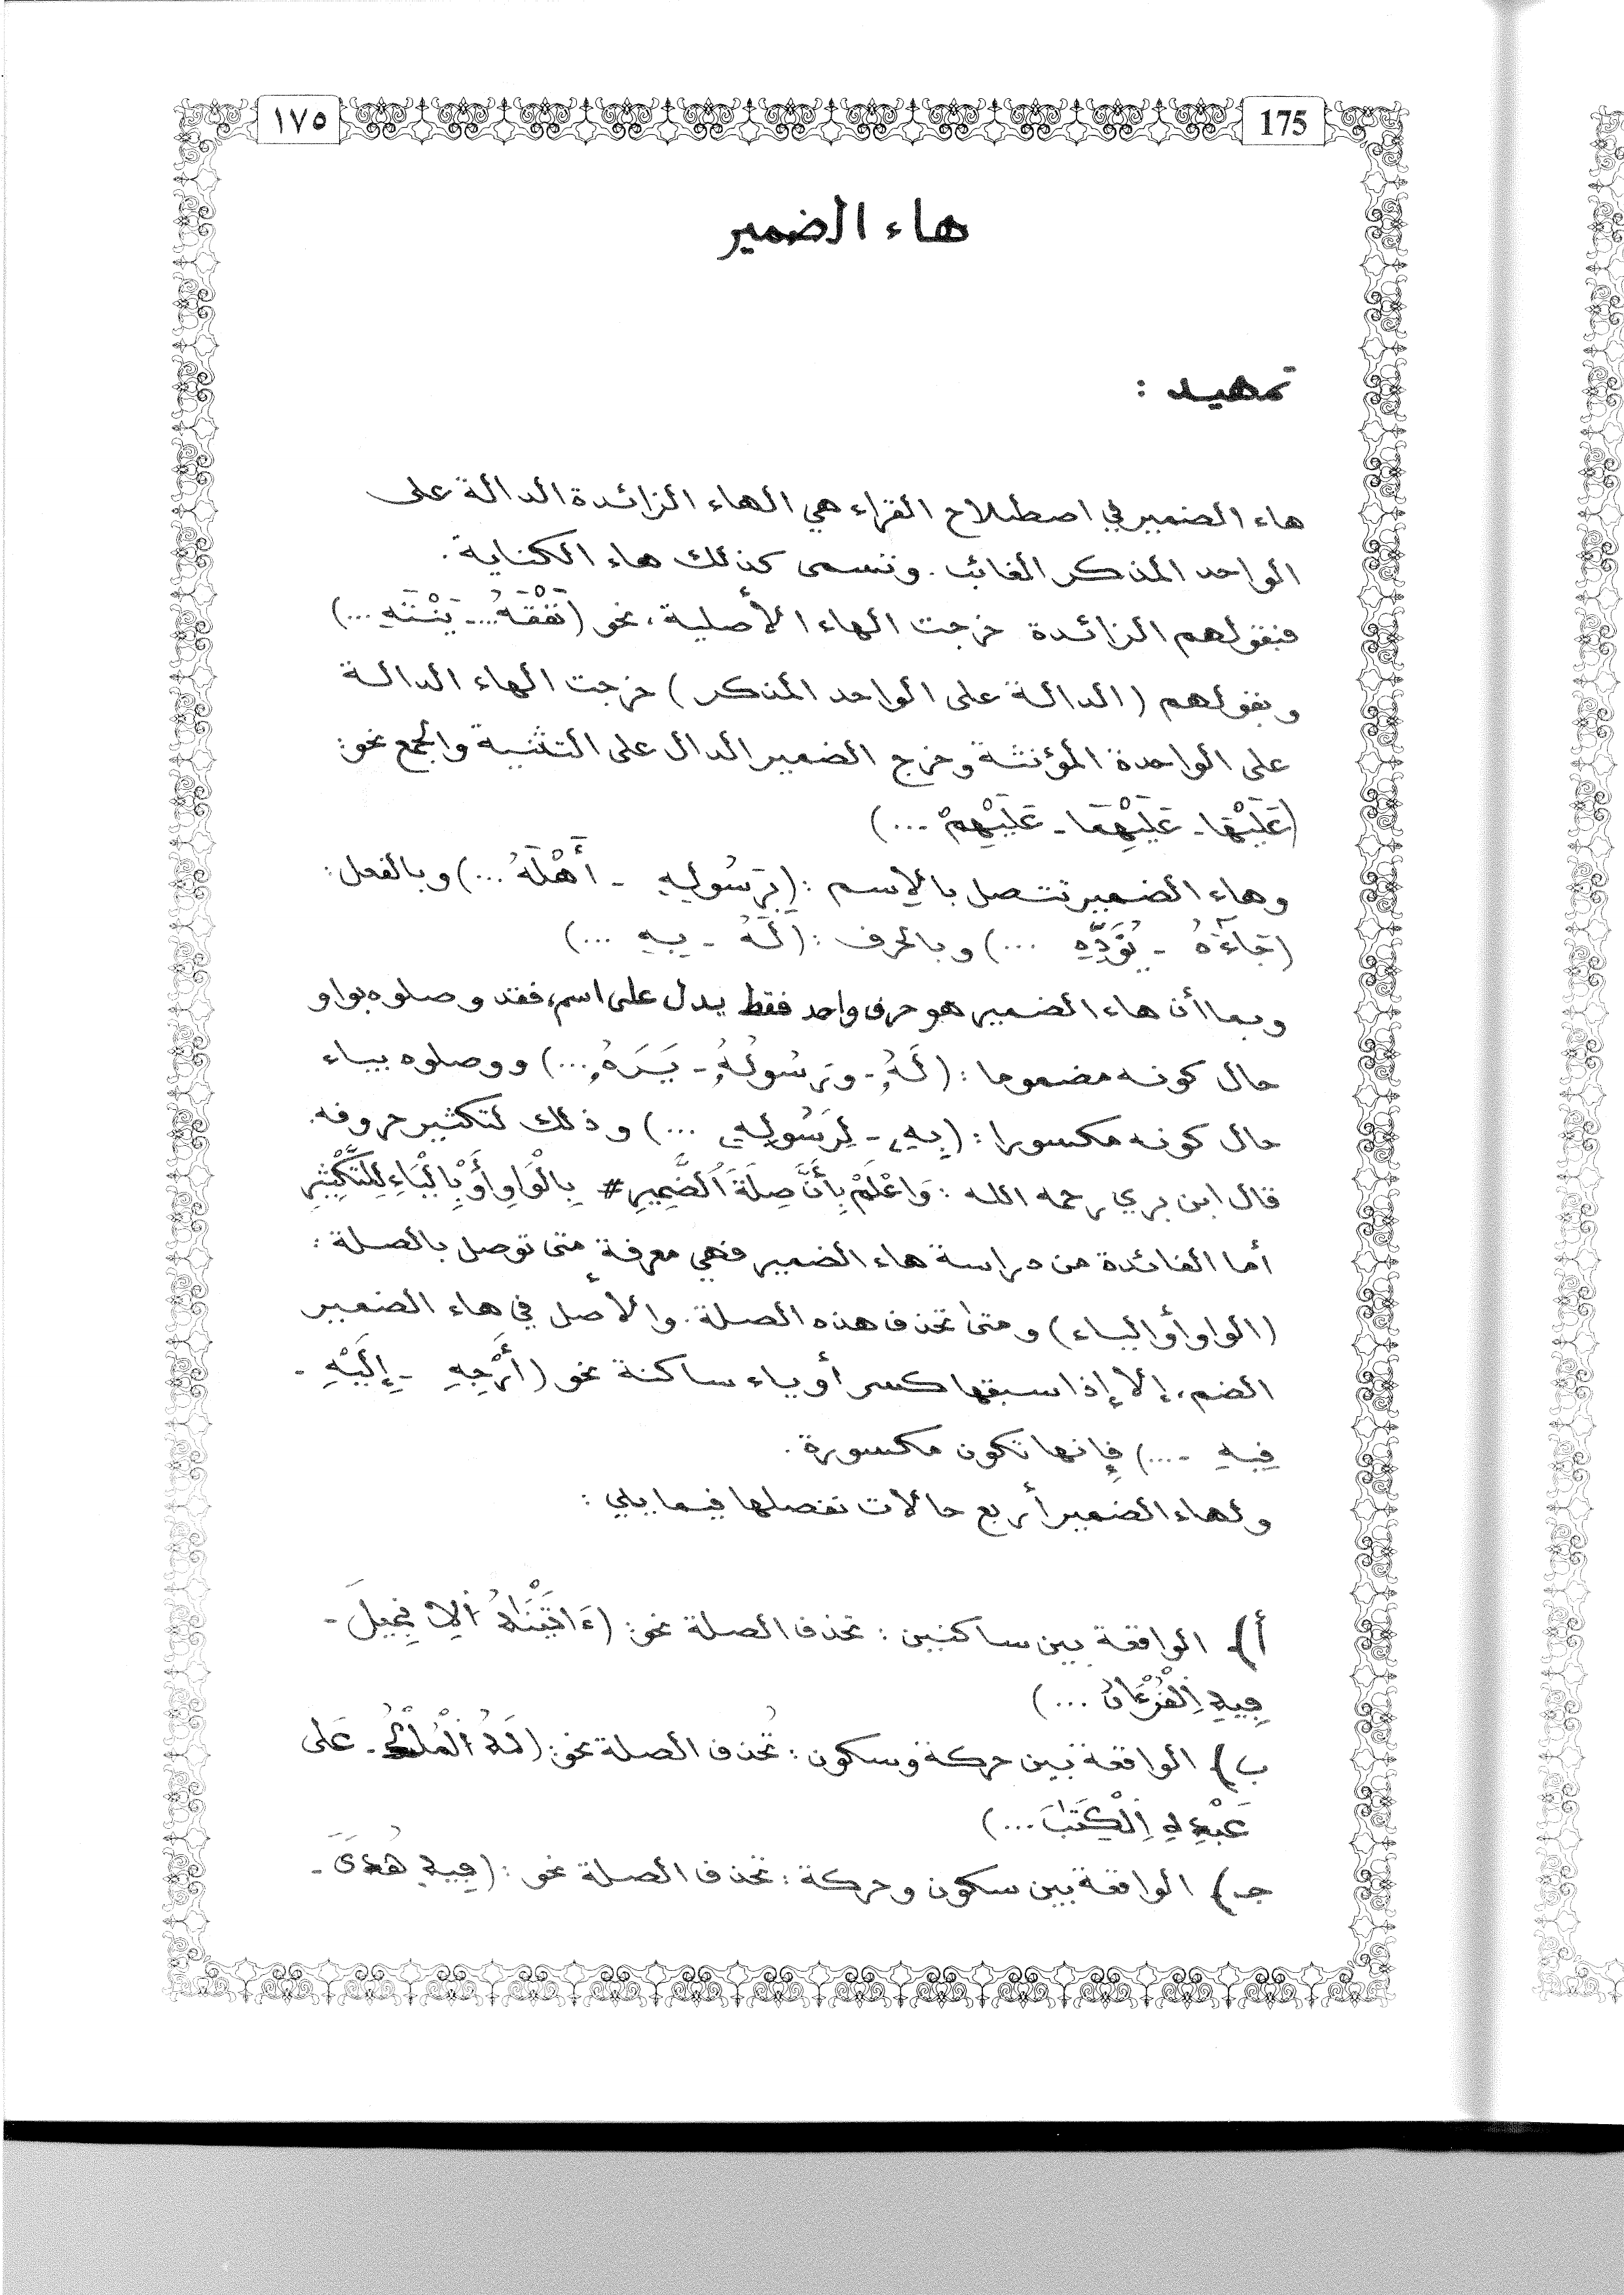 ١٧٥
175
هاء الضمير
تمهيد :
هاء الضمير في اصطلاح القراء هي الهاء الزائدة الدالة على
الواحد المذكر الغائب. وتسمى كذلك هاء الكناية.
فبقولهم الزائدة خرجت الهاء الأصلية، نحو (نَفْقَهُ... - يَنْتَهِ ...)
وبقولهم (الدالة على الواحد المذكر) خرجت الهاء الدالة
على الواحدة المؤنثة وخرج الضمير الدال على التثنية والجمع نحو:
(عَلَيْهَا - عَلَيْهِمَا - عَلَيْهِمْ ...)
وهاء الضمير تتصل بالاسم : (بِرَسُولِهِ - أَهْلَهُ ...) وبالفعل:
(جَاءَهُ - يُؤَدِّهِ ...) وبالحرف : (لَهُ - بِهِ ...)
وبما أن هاء الضمير هو حرف واحد فقط يدل على اسم، فقد وصلوه بواو
حال كونه مضموما : (لَهُۥ - وَرَسُولُهُۥ - يَرَهُۥ ...) ووصلوه بياء
حال كونه مكسورا : (بِهِۦ - لِرَسُولِهِۦ ...) وذلك لتكثير حروفه.
قال ابن بري رحمه الله : وَاعْلَمْ بِأَنَّ صِلَةَ الضَّمِيرِ # بِالْوَاوِ أَوْ بِالْيَاءِ لِلتَّكْثِيرِ
أما الفائدة من دراسة هاء الضمير فهي معرفة متى توصل بالصلة :
(الواو أو الياء) ومتى تحذف هذه الصلة. والأصل في هاء الضمير
الضم، إلا إذا سبقها كسر أو ياء ساكنة نحو (أَرْجِهِ - إِلَيْهِ -
فِيهِ - ...) فإنها تكون مكسورة.
ولهاء الضمير أربع حالات نفصلها فيما يلي :
أ) الواقعة بين ساكنين : تحذف الصلة نحو: (ءَاتَيْنَٰهُ اُلِانجِيلَ -
فِيهِ اِلْقُرْءَانُ ...)
ب) الواقعة بين حركة وسكون : تُحذف الصلة نحو: (لَهُ اُلْمُلْكُ - عَلَى
عَبْدِهِ اِلْكِتَٰبَ ...)
جـ) الواقعة بين سكون وحركة : تحذف الصلة نحو : (فِيهِ هُدىً -